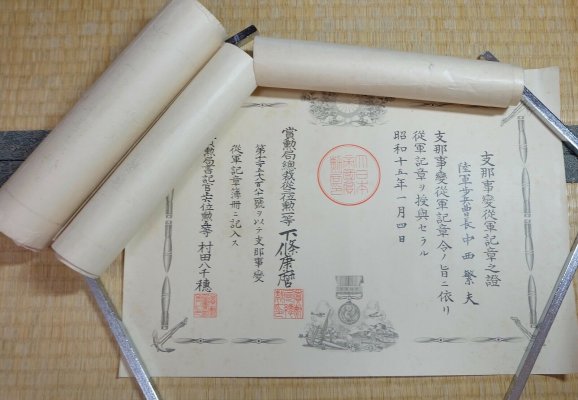 支那事變從軍記章之證
陸軍 曹長 中西繁夫
支那事變從軍記章令ノ旨ニ依リ
從軍記章ヲ授與セラル
昭和十五年一月四日
大日本帝國賞勲局印
賞勲局總裁從三位勲二等 下條康麿
第 號ヲ以テ支那事變
從軍記章簿冊ニ記入ス
勲局書記官 六位勲五等 村田八千穗